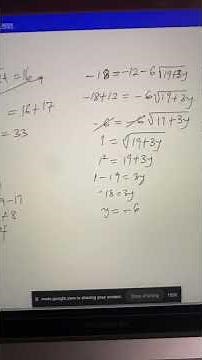 = 16+17
= 33
-18 = -12-6√19+3y
-18+12 = -6√19+3y
-6 = -6√19+3y
1 = √19+3y
1² = 19+3y
1-19 = 3y
-18 = 3y
y = -6
meet.google.com is sharing your screen.
Stop sharing
Hide